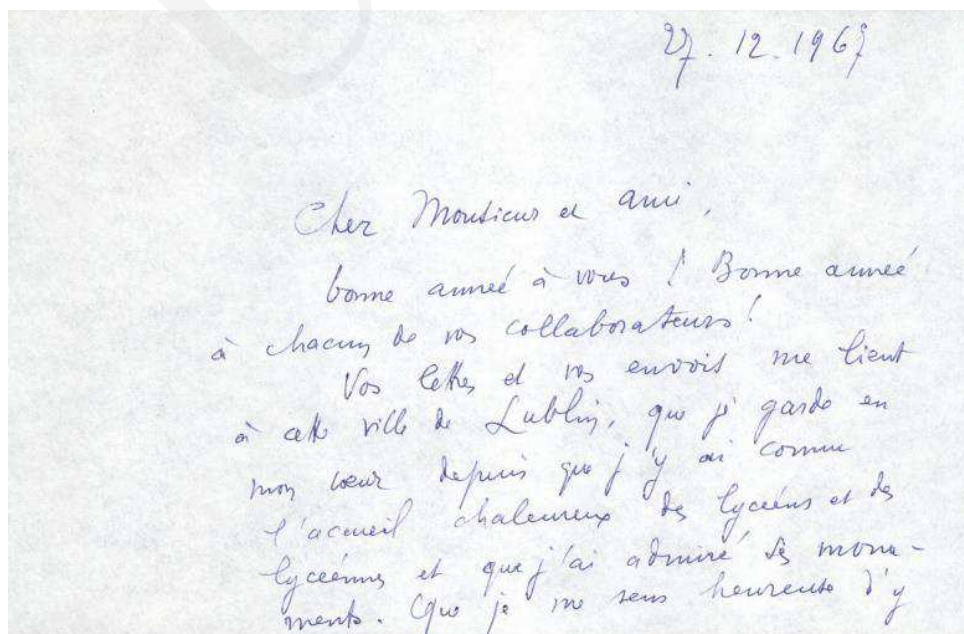 27.12.1967
Cher Monsieur et ami,
bonne année à vous ! Bonne année
à chacun de vos collaborateurs !
Vos lettres et vos envois me lient
à cette ville de Lublin, que je garde en
mon cœur depuis que j'y ai connu
l'accueil chaleureux des lycéens et des
lycéennes et que j'ai admiré ses monu-
ments. Que je me sens heureuse d'y